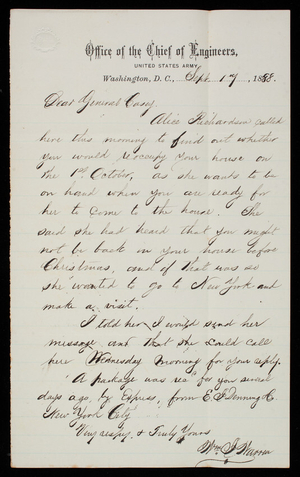 Office of the Chief of Engineers,
UNITED STATES ARMY.
Washington, D. C., Sept. 17, 1888.
Dear General Casey
Alice Richardson called
here this morning to find out whether
you would reoccupy your house on
the 1st October, as she wants to be
on hand when you are ready for
her to come to the house. She
said she had heard that you might
not be back in your house before
Christmas, and if that was so
she wanted to go to New York and
make a visit.
I told her I would send her
message and that she could call
here Wednesday morning for your reply.
A package was recd for you several
days ago, by Express, from E. P. Denning & Co.
New York City
Very respy. & Truly Yours
Wm. J. Warren